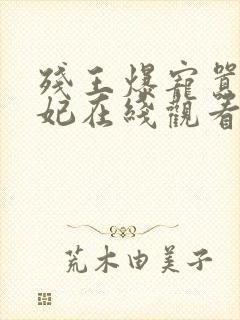 殘王爆寵囂
妃在綫觀看
荒木由美子